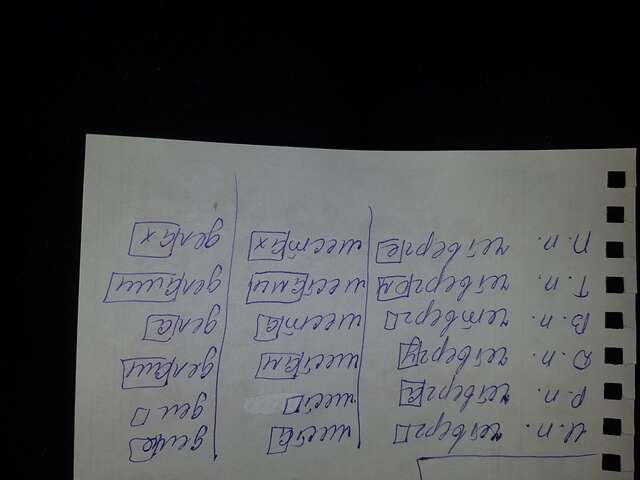 И.п. четверг места дела
Р.п. четверга мест дел
Д.п. четвергу местам делам
В.п. четверг места дела
Т.п. четвергом местами делами
П.п. четверге местах делах